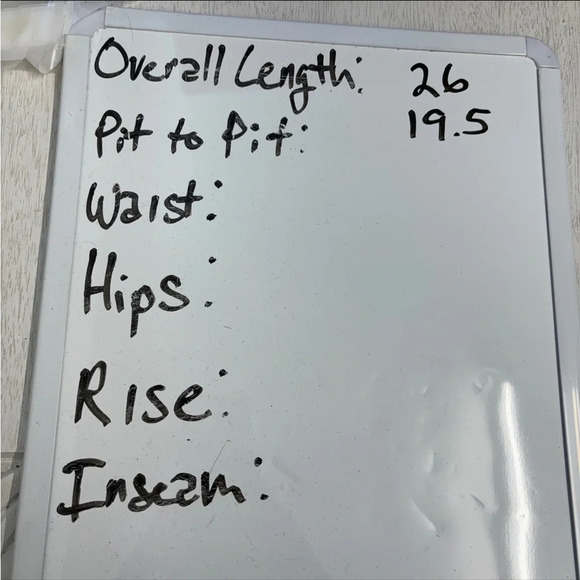 Overall Length: 26
Pit to Pit: 19.5
Waist:
Hips:
Rise:
Inseam: